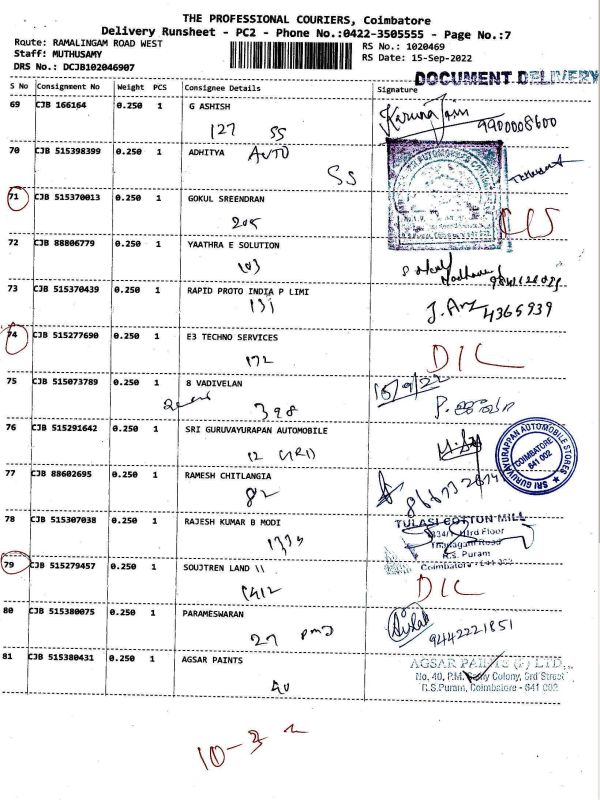 THE PROFESSIONAL COURIERS, Coimbatore
Delivery Runsheet - PC2 - Phone No.:0422-3505555 - Page No.:7
Route: RAMALINGAM ROAD WEST
Staff: MUTHUSAMY
DRS No.: DCJB102046907
RS No.: 1020469
RS Date: 15-Sep-2022
DOCUMENT DELIVERY
S No Consignment No Weight PCS Consignee Details Signature
69 CJB 166164 0.250 1 G ASHISH Karuna Jain
127 SS 9900008600
70 CJB 515398399 0.250 1 ADHITYA AUTO
SS
71 CJB 515370013 0.250 1 GOKUL SREENDRAN
205
72 CJB 88806779 0.250 1 YAATHRA E SOLUTION
103
73 CJB 515370439 0.250 1 RAPID PROTO INDIA P LIMI
131 4365939
74 CJB 515277690 0.250 1 E3 TECHNO SERVICES
172 D/C
75 CJB 515073789 0.250 1 8 VADIVELAN 15/9/22
398
76 CJB 515291642 0.250 1 SRI GURUVAYURAPAN AUTOMOBILE
12
SRI GURUVAYURAPPAN AUTOMOBILE STORES
COIMBATORE
641 002
77 CJB 88602695 0.250 1 RAMESH CHITLANGIA
82
78 CJB 515307038 0.250 1 RAJESH KUMAR B MODI
1334
TULASI COTTON MILL
Floor
Road
R.S. Puram
Coimbatore
79 CJB 515279457 0.250 1 SOUJTREN LAND \\
D/C
80 CJB 515380075 0.250 1 PARAMESWARAN
27 9442221851
81 CJB 515380431 0.250 1 AGSAR PAINTS
40
AGSAR PAINTS (P) LTD.,
No, 40, P.M. Samy Colony, 3rd Street
R.S.Puram, Coimbatore - 641 002
10-3